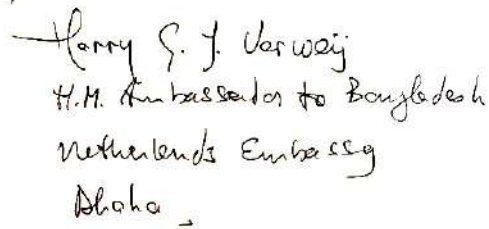 Harry G. J. Verweij
H.M. Ambassador to Bangladesh
Netherlands Embassy
Dhaka.